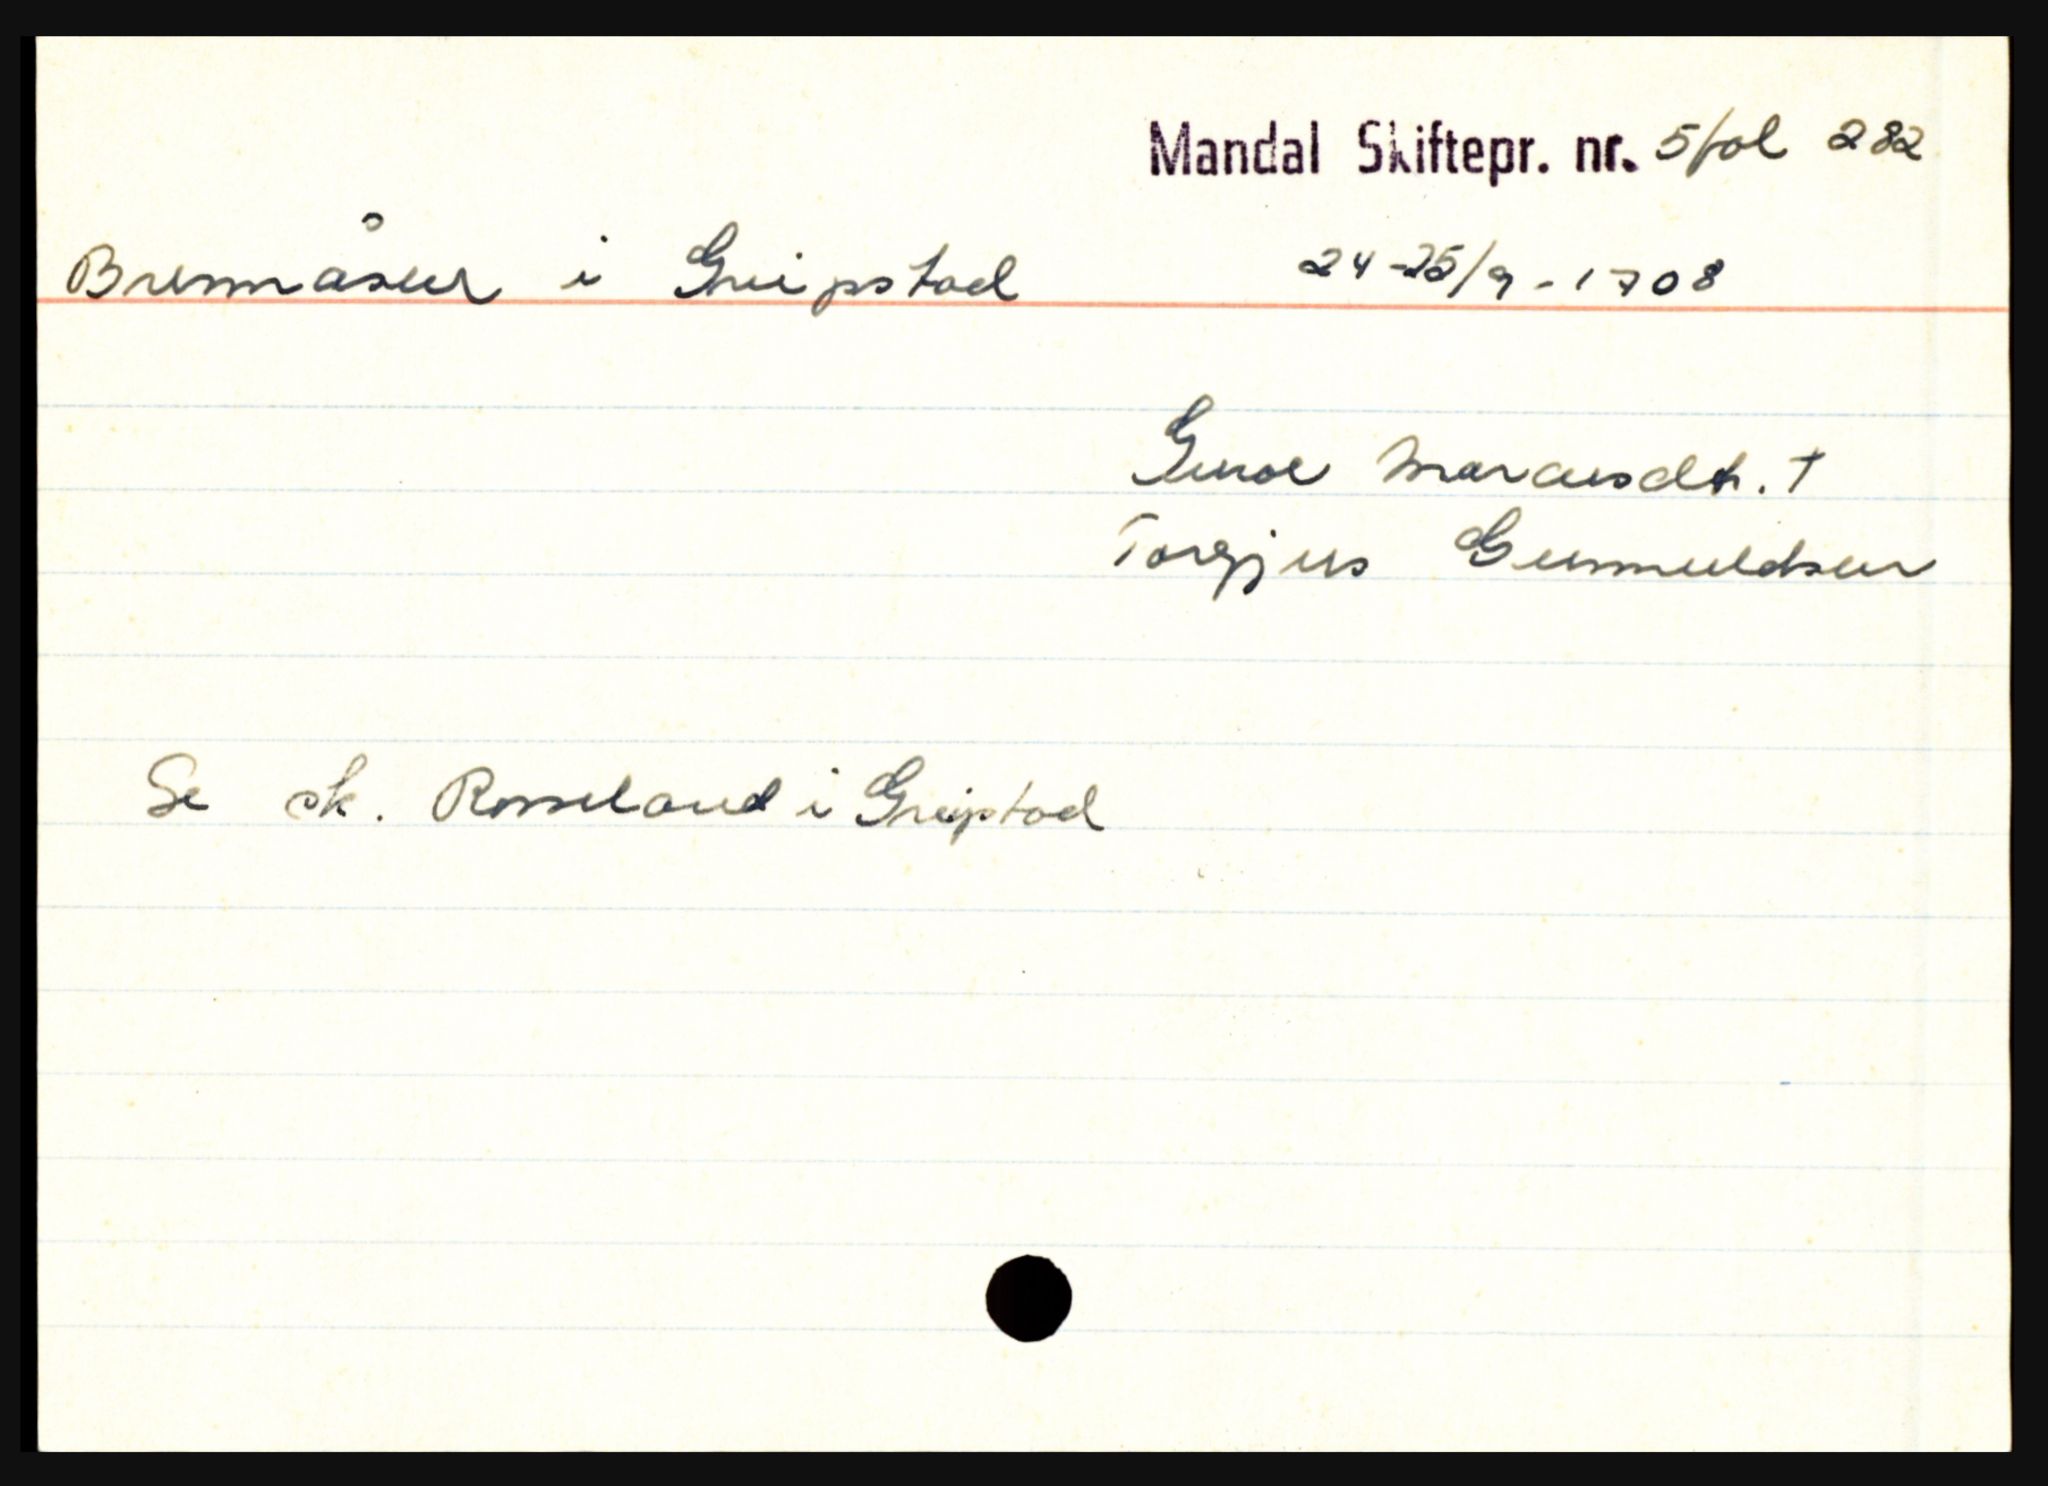 Mandal Skiftepr. nr. 5 fol 282
Brennåsen i Greipstad 24-25/9 - 1708
Guroe Marcusdtr. †
Torgjus Gunnuldsen
Se sk. Rosseland i Greipstad